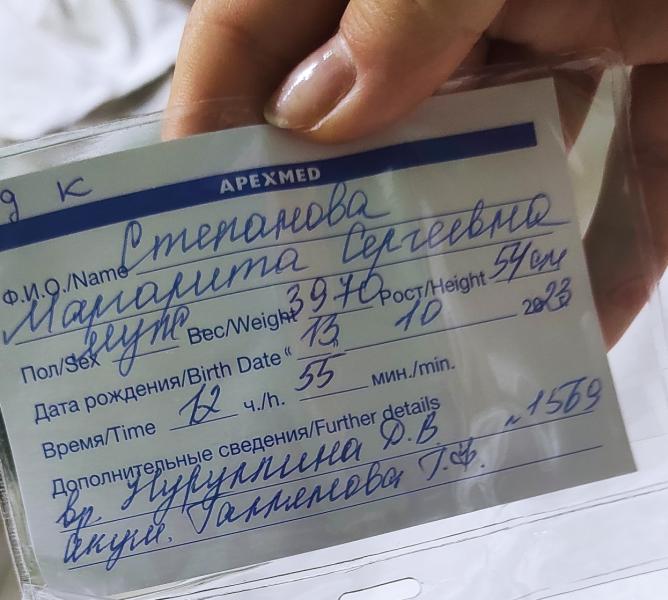 д к
APEXMED
Ф.И.О./Name Степанова
Маргарита Сергеевна
Пол/Sex Вес/Weight 3970 Рост/Height 54 см
Дата рождения/Birth Date “ 13 10 2023
Время/Time 12 ч./h. 55 мин./min.
Дополнительные сведения/Further details
вр. Нуруллина Д.В. № 1569
акуш. Галлямова Г.Ф.